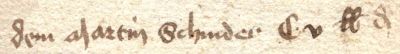 dem martin Schinder C v ℔ d